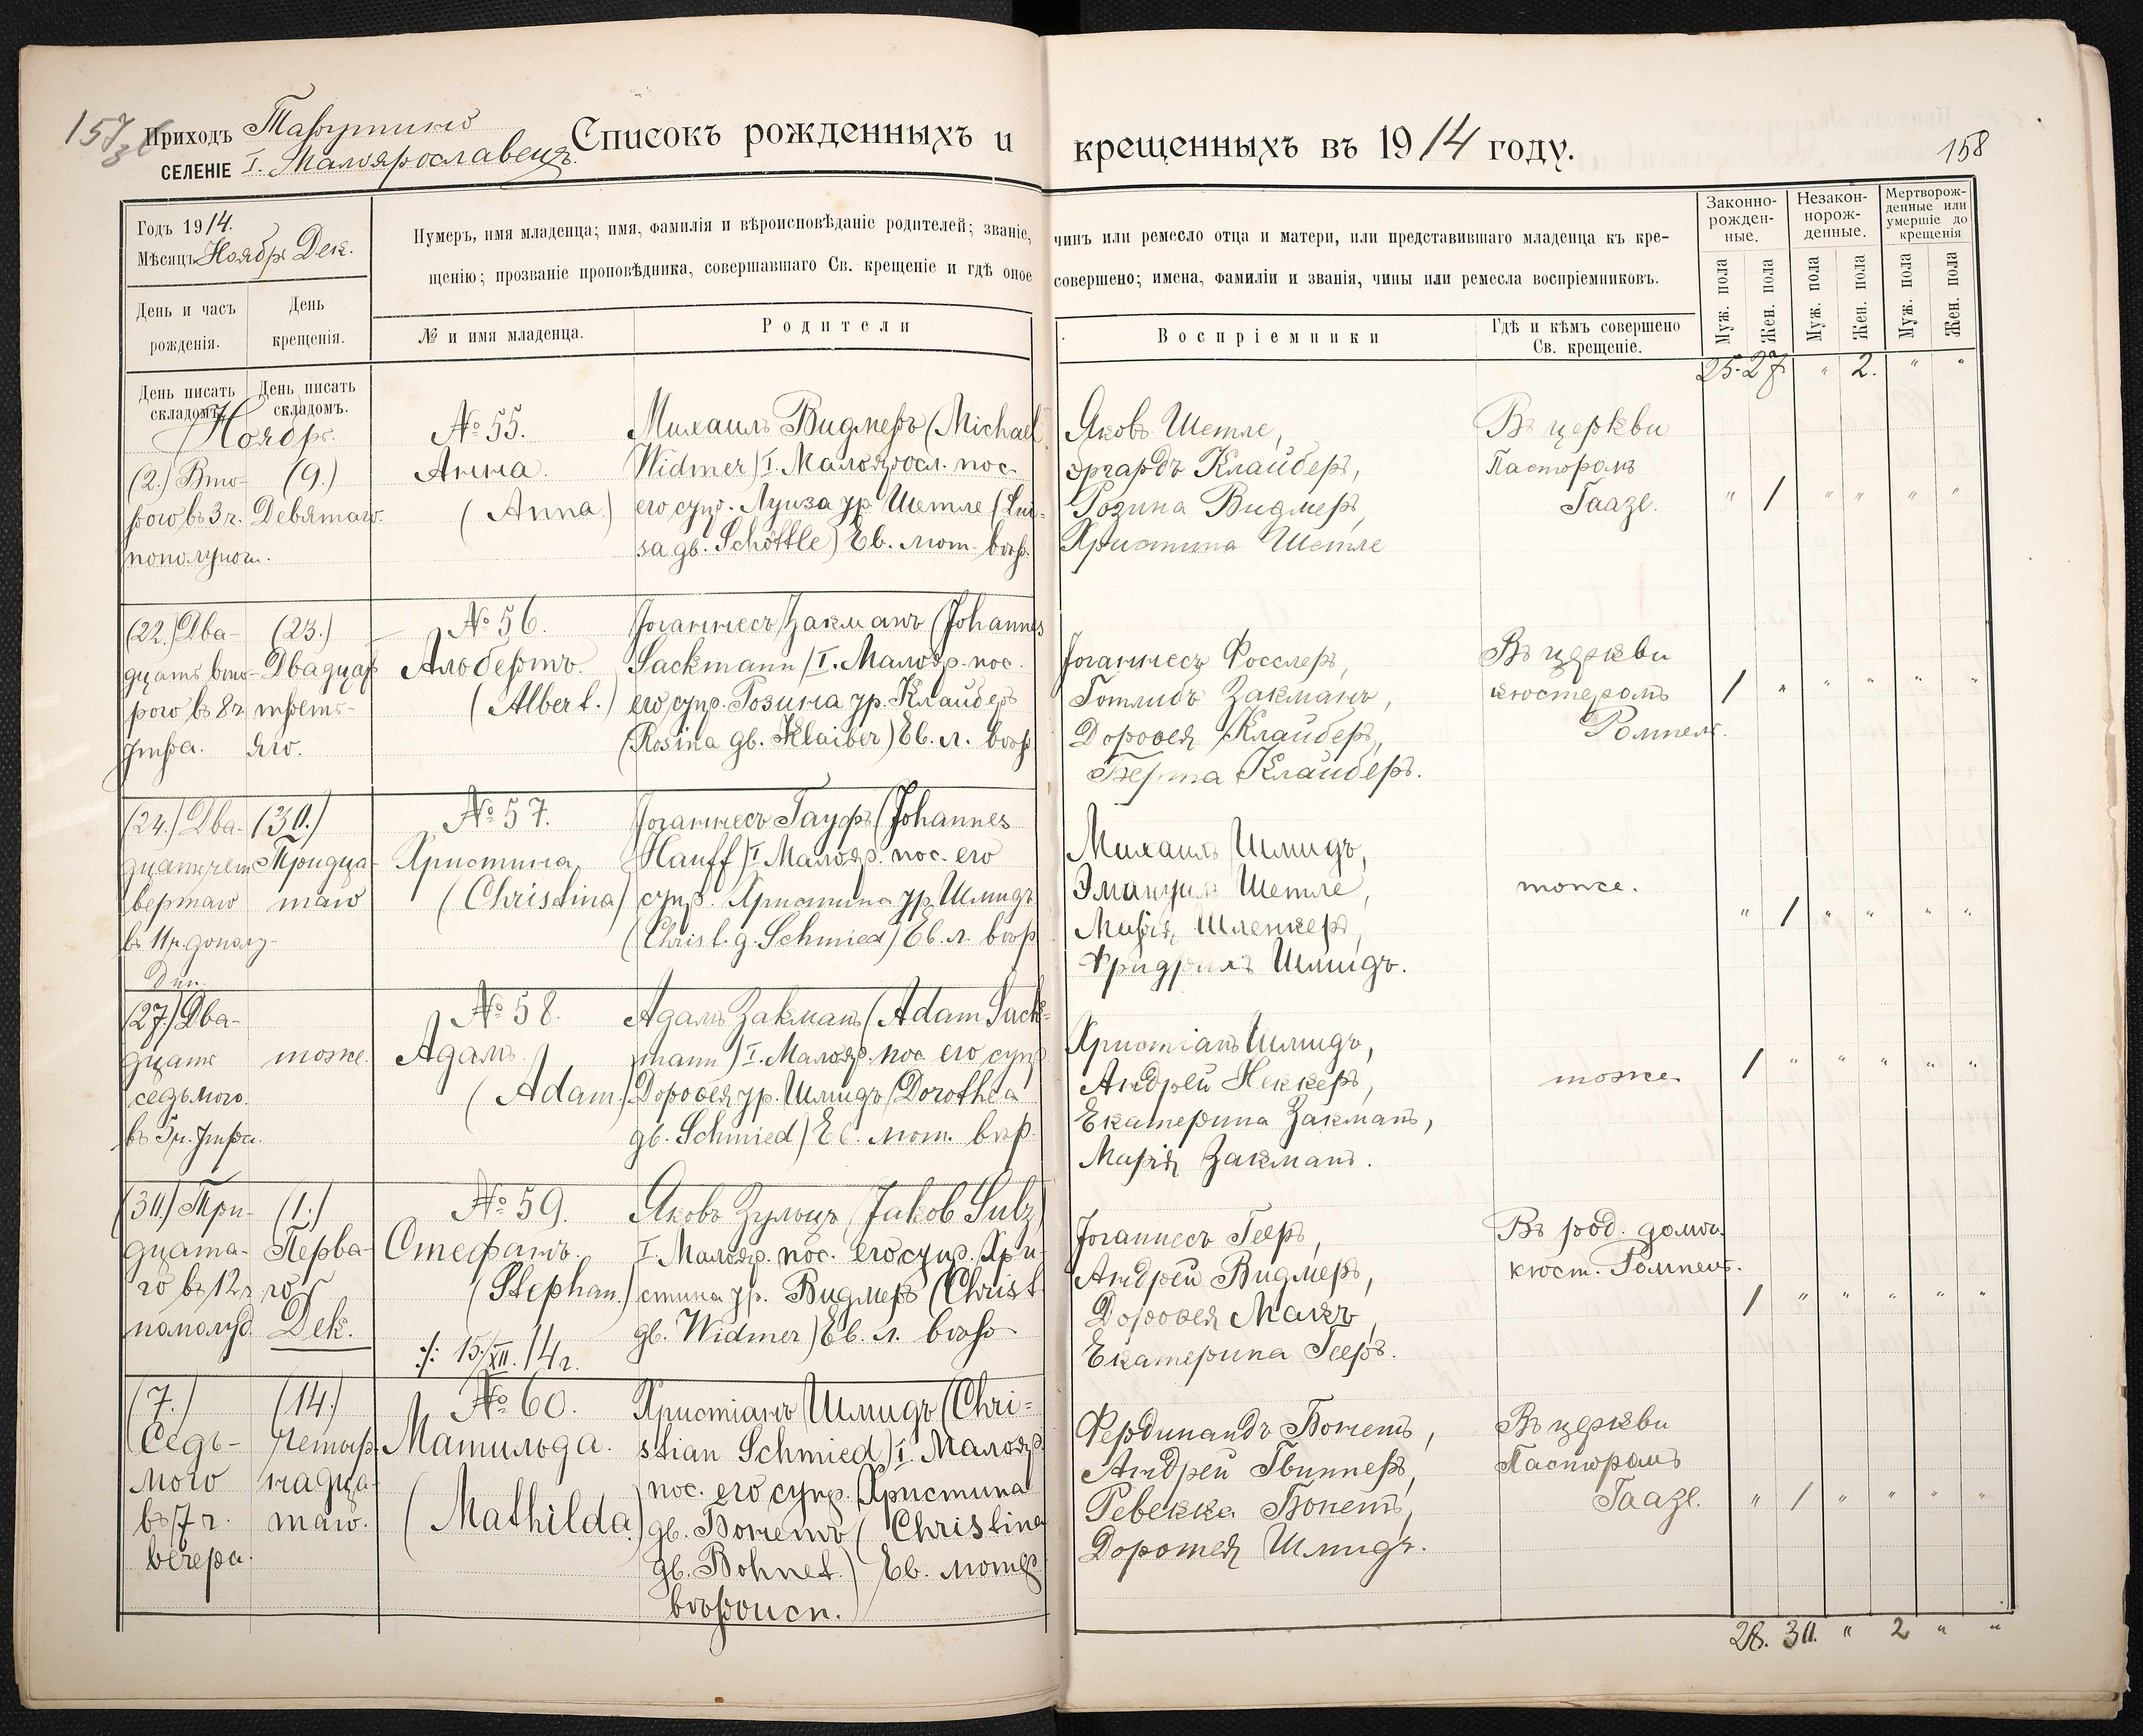 157
Приходъ Тарутино
СЕЛЕНІЕ I. Малоярославецъ.
Списокъ рожденныхъ и крещенныхъ въ 1914 году.
158
Годъ 1914.
Мѣсяцъ Ноябрь Дек.
День и часъ рожденія.
День крещенія.
Нумеръ, имя младенца; имя, фамилія и вѣроисповѣданіе родителей; званіе, чинъ или ремесло отца и матери, или представившаго младенца къ кре-
щенію; прозваніе проповѣдника, совершавшаго Св. крещеніе и гдѣ оное совершено; имена, фамиліи и званія, чины или ремесла воспріемниковъ.
№ и имя младенца.
Родители
Воспріемники
Гдѣ и кѣмъ совершено
Св. крещеніе.
Законно-
рожден-
ные.
Незакон-
норож-
денные.
Мертворож-
денные или
умершіе до
крещенія
Муж. пола
Жен. пола
Муж. пола
Жен. пола
Муж. пола
Жен. пола
25. 27 " 2. " "
День писать складомъ.
День писать складомъ.
Ноябрь.
(2.) Вто-
рого въ 3 ч.
пополуноч.
(9.)
Девятаго.
№ 55.
Анна.
(Anna)
Михаилъ Видмеръ (Michael
Widmer) I. Малояросл. пос.
его супр. Луиза ур. Шетле (Lui-
sa gb. Schöttle) Ев. лют. вѣр.
Яковъ Шетле,
Эргардъ Клайберъ,
Розина Видмеръ,
Христина Шетле
Въ церкви
Пасторомъ
Гаазе.
" 1 " " " "
(22.) Два-
дцать вто-
рого въ 8 ч.
утра.
(23.)
Двадцать
треть-
яго.
№ 56.
Альбертъ.
(Albert.)
Іоганнесъ Закманъ (Johannes
Sackmann) I. Малояр. пос.
его супр. Розина ур. Клайберъ
(Rosina gb. Klaiber) Ев. л. вѣр
Іоганнесъ Фосслеръ,
Готлибъ Закманъ,
Доровея Клайберъ,
Берта Клайберъ.
Въ церкви
кюстеромъ
Ромпель.
1 " " " " "
(24.) Два-
дцать чет
вертаго
въ 11 ч. дополу-
дни.
(30.)
Тридца-
таго
№ 57.
Христина,
(Christina)
Іоганнесъ Гауфъ (Johannes
Hauff) I Малояр. пос. его
супр. Христина ур. Шмидъ
(Christ. g. Schmied) Ев. л. вѣр
Михаилъ Шмидъ,
Эмануилъ Шетле,
Марія Шленкеръ,
Фридрихъ Шмидъ.
тоже.
" 1 " " " "
(27.) Два-
дцать
седьмого.
въ 5 ч. утра.
тоже.
№ 58.
Адамъ.
(Adam.)
Адамъ Закманъ (Adam Sack-
mann) I. Малояр. пос. его супр
Доровея ур. Шмидъ (Dorothea
gb. Schmied) Ев. лют. вѣр.
Христіанъ Шмидъ,
Андрей Неккеръ,
Екатерина Закманъ,
Марія Закманъ.
тоже
1 " " " " "
(30.) Три-
дцата-
го въ 12 ч.
пополуд.
(1.)
Перва-
го
Дек.
№ 59.
Стефанъ.
(Stephan.)
15/XII. 14 г.
Яковъ Зульцъ (Jakob Sulz)
I. Малояр. пос. его супр. Хри-
стина ур. Видмеръ (Christ
gb. Widmer) Ев. л. вѣр
Іоганнесъ Гееръ,
Андрей Видмеръ,
Доровея Макъ,
Екатерина Гееръ.
Въ род. домѣ.
кюст. Ромпель.
1 " " " " "
(7.)
Седь-
мого
въ 7 ч.
вечера.
(14.)
Четыр-
надца-
таго.
№ 60.
Матильда.
(Mathilda)
Христіанъ Шмидъ (Chri-
stian Schmied) I. Малояр.
пос. его супр. Христина
gb. Бонетъ (Christina
gb. Bohnet.) Ев. лютер
вѣроисп.
Фердинандъ Бонетъ,
Андрей Гвиннеръ,
Ревекка Бонетъ,
Доротея Шмидъ.
Въ церкви
Пасторомъ
Гаазе.
" 1 " " " "
28. 30. " 2 " "